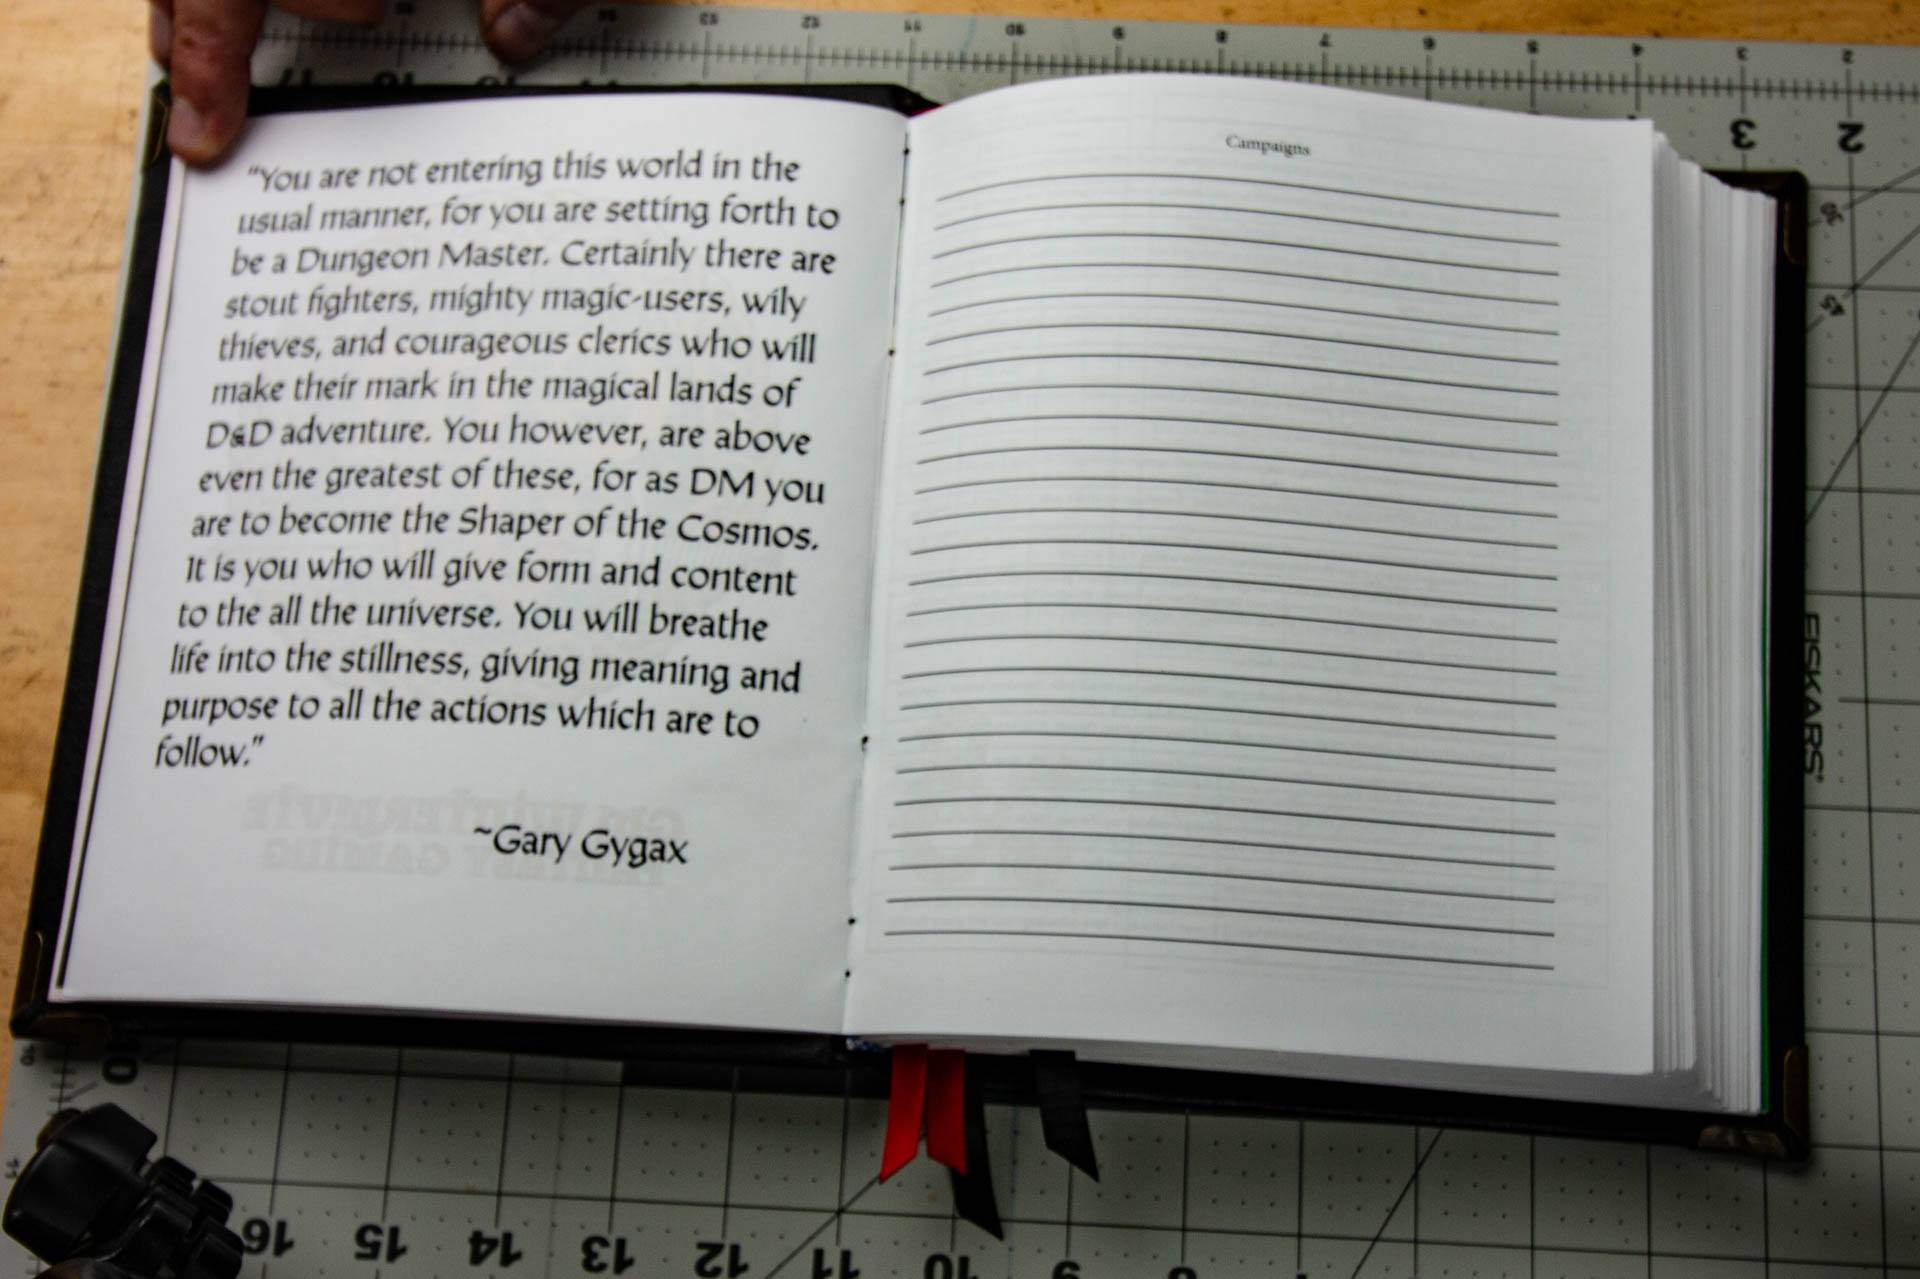 "You are not entering this world in the
usual manner, for you are setting forth to
be a Dungeon Master. Certainly there are
stout fighters, mighty magic-users, wily
thieves, and courageous clerics who will
make their mark in the magical lands of
D&D adventure. You however, are above
even the greatest of these, for as DM you
are to become the Shaper of the Cosmos.
It is you who will give form and content
to the all the universe. You will breathe
life into the stillness, giving meaning and
purpose to all the actions which are to
follow."
~Gary Gygax
Campaigns
13 12 11 10 9 8 7 6 5 4 3 2
17
3 2
30
45
FISKARS
10
16 15 14 13 12 11 10 9 8